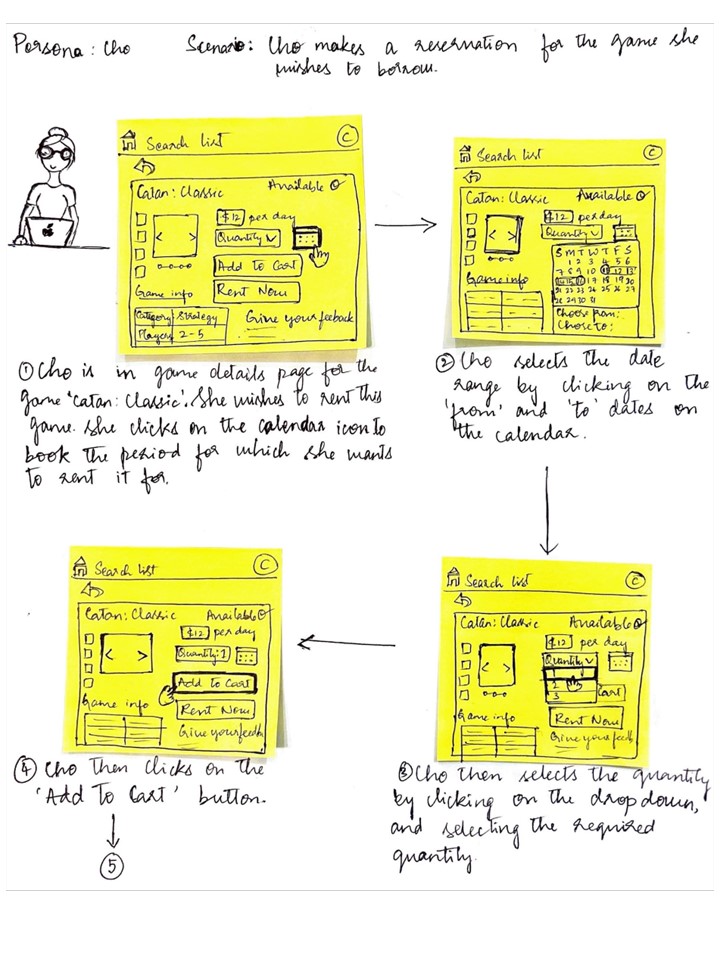 Persona: Cho
Scenario: Cho makes a reservation for the game she
wishes to borrow.
Search list C
Catan: Classic Available
$12 per day
Quantity
Add to Cart
Game info Rent Now
Category Strategy
Players 2-5
Give your feeback
① Cho is in game details page for the
game 'Catan: Classic'. She wishes to rent this
game. She clicks on the calendar icon to
book the period for which she wants
to rent it for.
Search list C
Catan: Classic Available
$12 per day
Quantity
S M T W T F S
1 2 3 4 5 6
7 8 9 10 11 12 13
14 15 16 17 18 19 20
21 22 23 24 25 26 27
28 29 30 31
Game info
Choose from:
Chose to:
② Cho selects the date
range by clicking on the
'from' and 'to' dates on
the calendar.
Search list C
Catan: Classic Available
$12 per day
Quantity
1
2
3
Cart
Game info Rent Now
Give your feedb
③ Cho then selects the quantity
by clicking on the dropdown,
and selecting the required
quantity.
Search list C
Catan: Classic Available
$12 per day
Quantity: 1
Add to Cart
Game info Rent Now
Give your feedb
④ Cho then clicks on the
'Add To Cart' button.
⑤